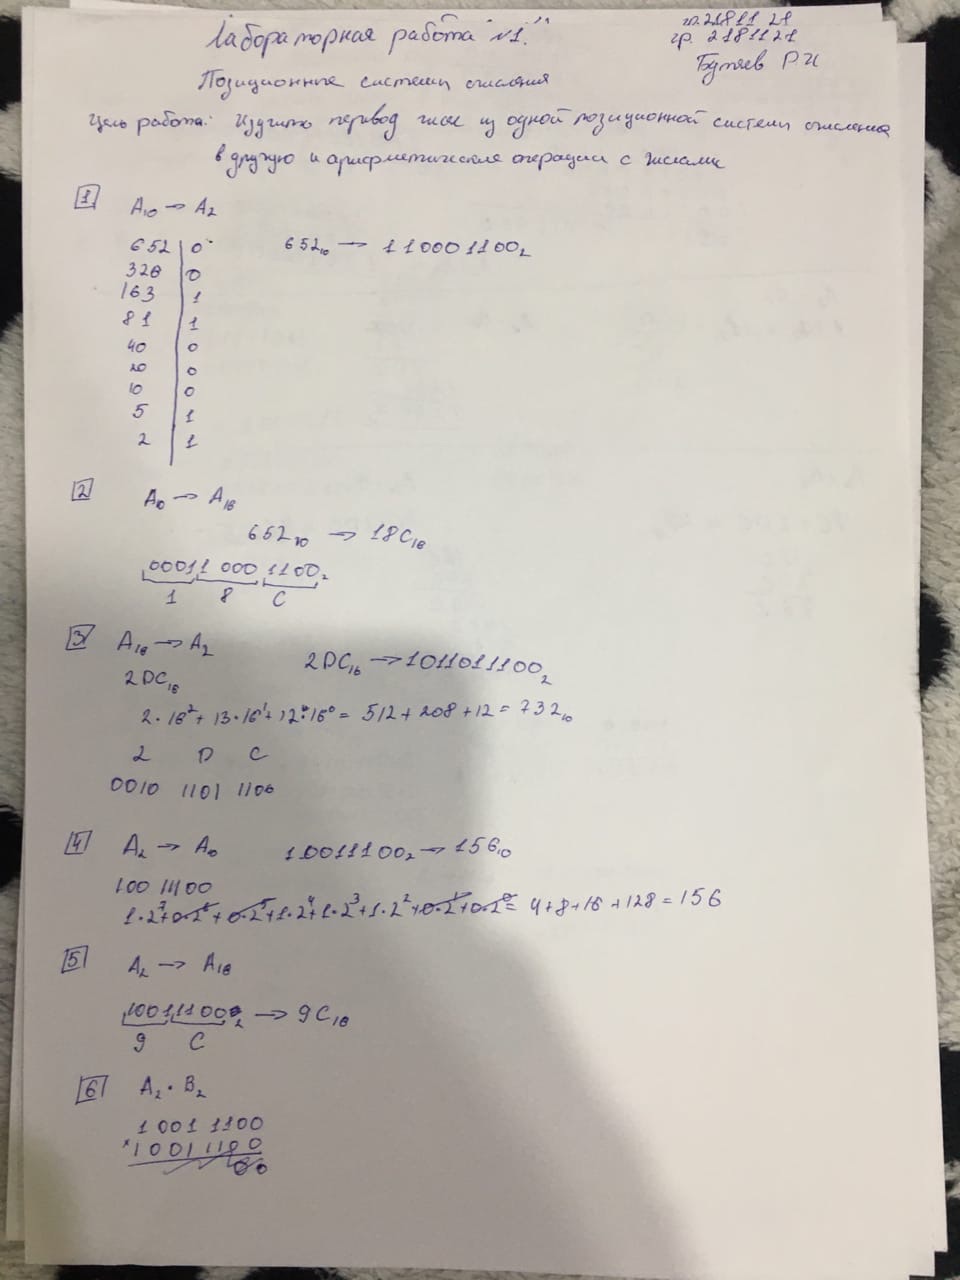 гр. 2181121
Лабораторная работа №1.
гр. 2181121
Р И
Позиционные системы счисления
Цель работы: Изучить перевод чисел из одной позиционной системы счисления
в другую и арифметические операции с числами
1 A₁₀ → A₂
652 | 0 652₁₀ → 110001100₂
326 | 0
163 | 1
81 | 1
40 | 0
20 | 0
10 | 0
5 | 1
2 | 1
2 A₁₀ → A₁₆
652₁₀ → 18C₁₆
000110001100₂
1 8 C
3 A₁₆ → A₂
2DC₁₆ → 1011011100₂
2DC₁₆
2·16²+13·16¹+12·16⁰= 512+208+12=732₁₀
2 D C
0010 1101 1100
4 A₂ → A₁₀ 10011100₂ → 156₁₀
100 11100
1·2⁷+0·2⁶+0·2⁵+1·2⁴+1·2³+1·2²+0·2¹+0·2⁰= 4+8+16+128=156
5 A₂ → A₁₆
10011100₂ → 9C₁₆
9 C
6 A₂ · B₂
1001 1100
×1001 1100
00